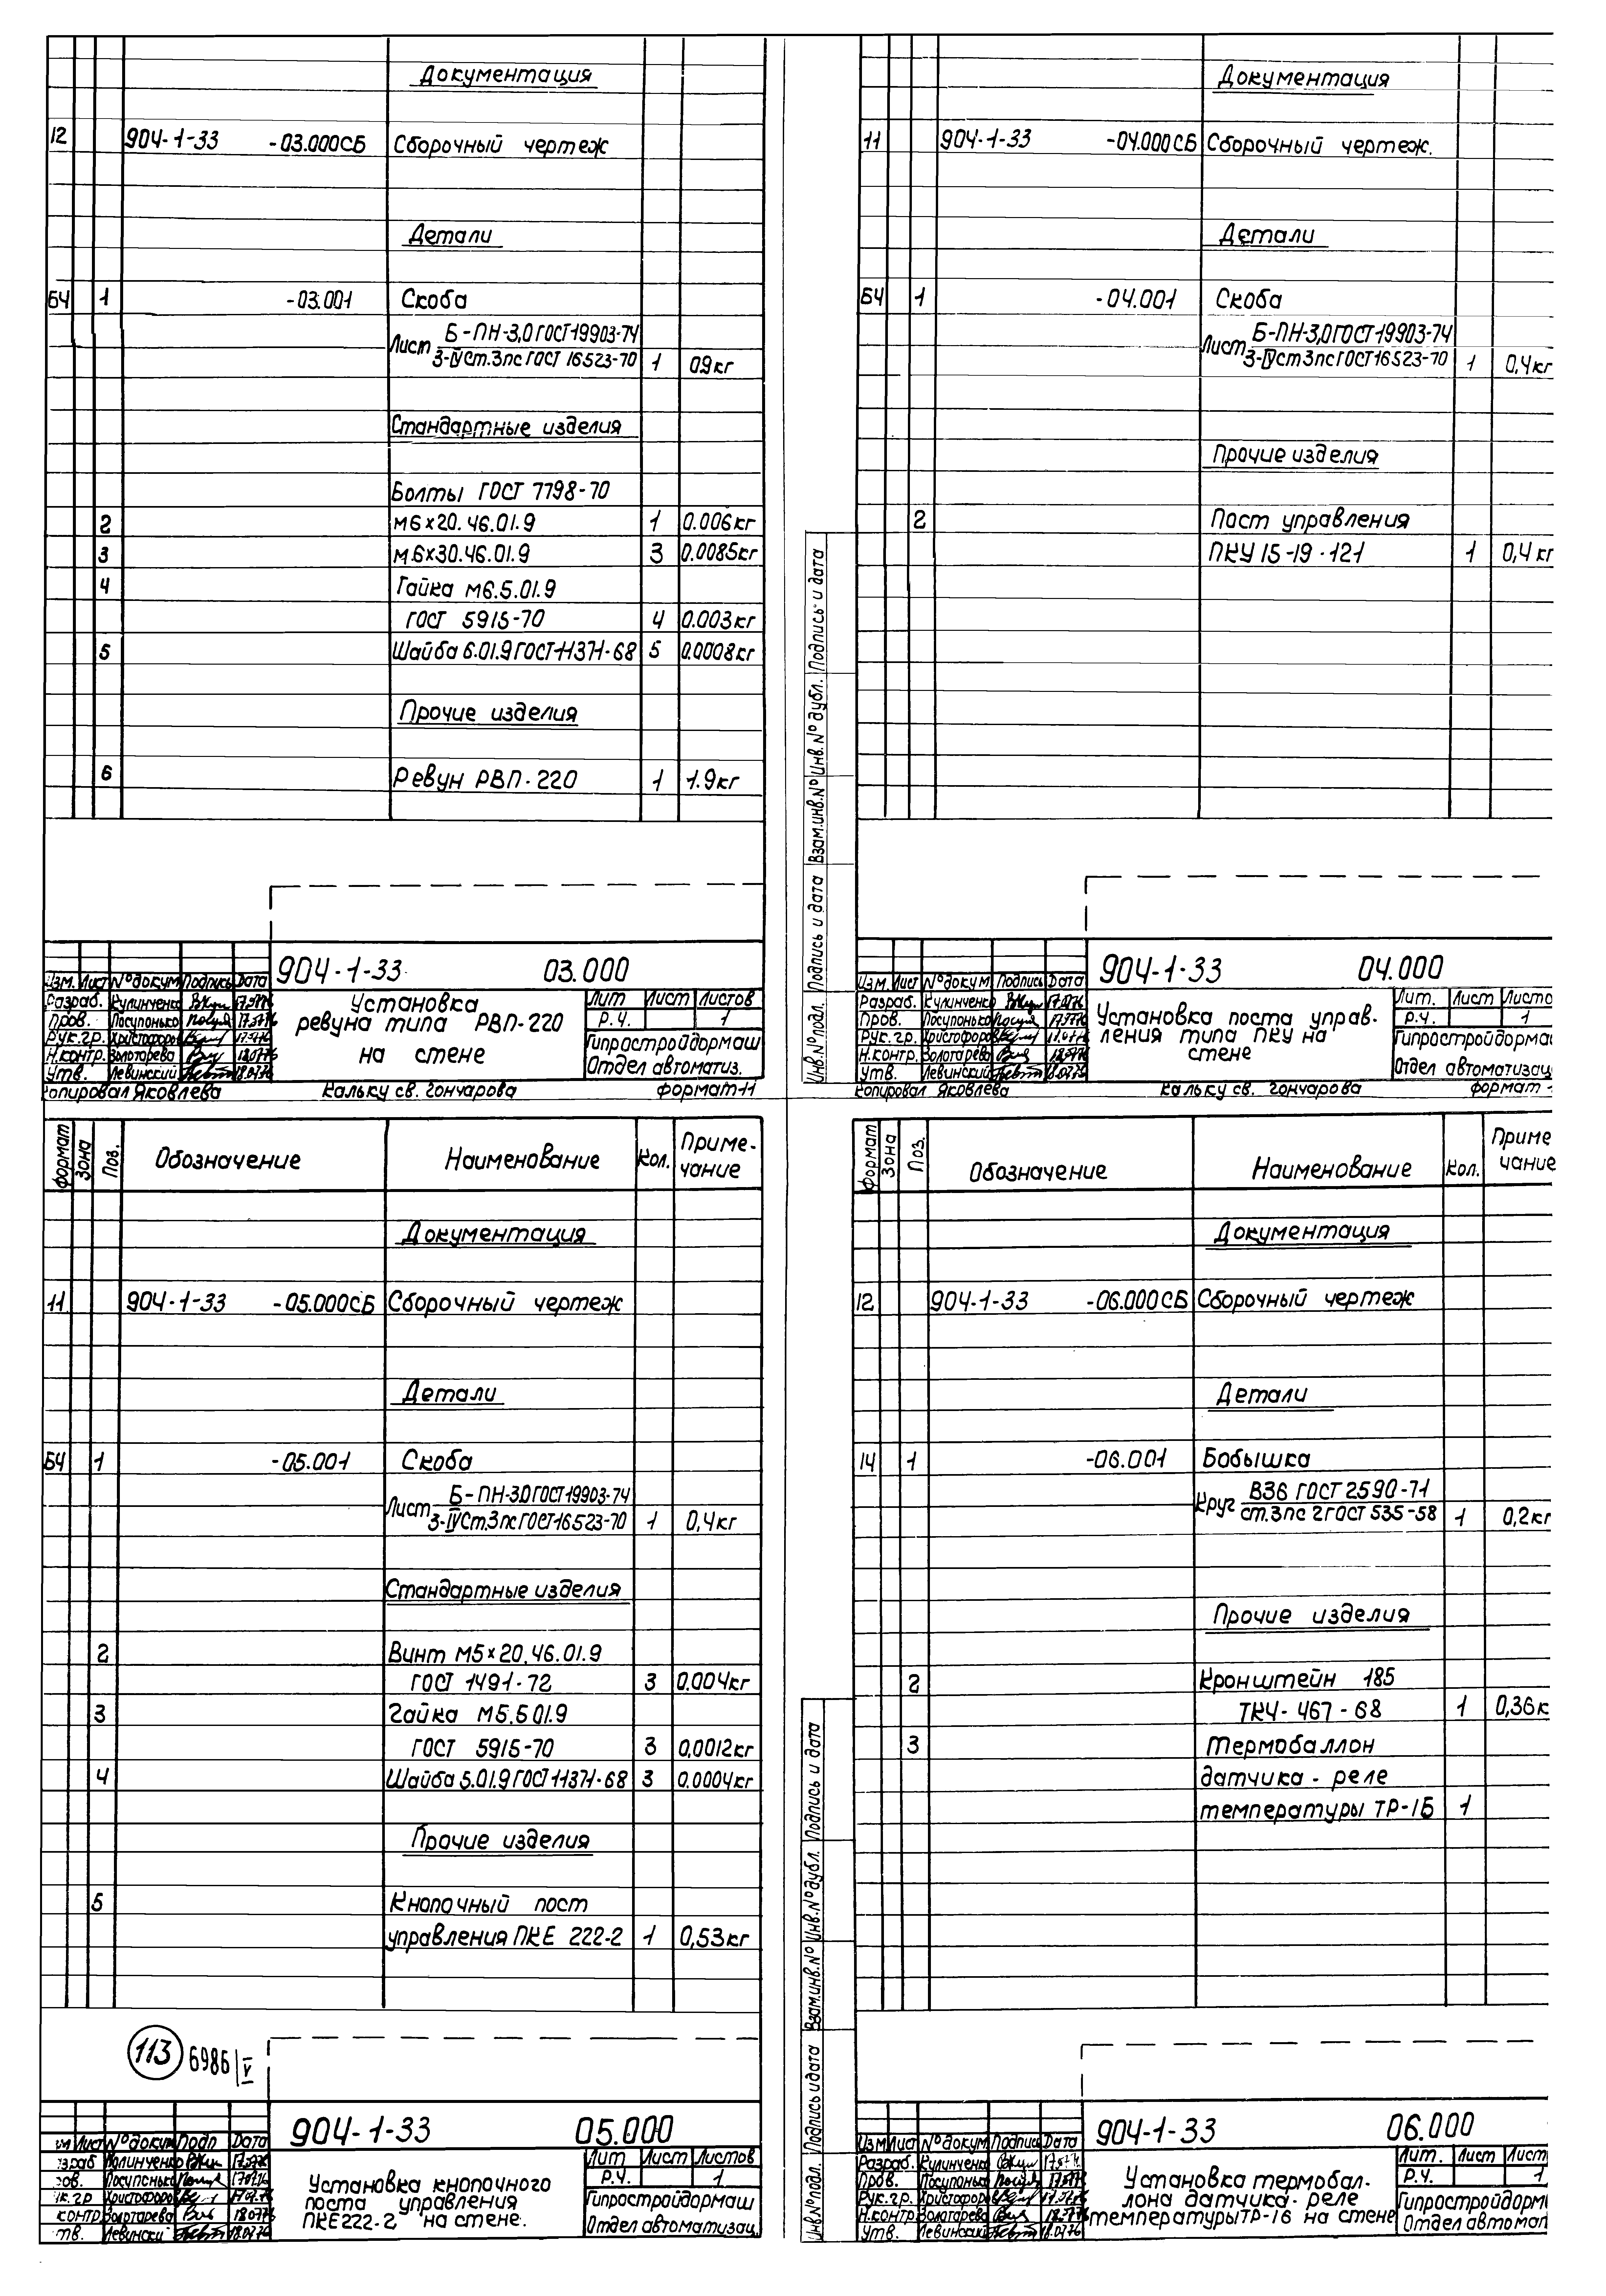 Документация
12 904-1-33 -03.000СБ Сборочный чертеж
Детали
БЧ 1 -03.001 Скоба
Лист Б-ПН-3,0 ГОСТ 19903-74
3-IV Ст.3пс ГОСТ 16523-70 1 09кг
Стандартные изделия
Болты ГОСТ 7798-70
2 М6×20.46.01.9 1 0.006кг
3 М.6×30.46.01.9 3 0.0085кг
4 Гайка М6.5.01.9
ГОСТ 5915-70 4 0.003кг
5 Шайба 6.01.9 ГОСТ 11371-68 5 0.0008кг
Прочие изделия
6 Ревун РВП-220 1 1.9кг
904-1-33 03.000
Изм. Лист №докум Подпись Дата
Разраб. Кулинченко
Пров. Посупонько
Рук.гр. Христофоров
Н.контр. Золотарева
Утв. Левинский
Установка
ревуна типа РВП-220
на стене
Лит Лист Листов
Р.Ч. 1
Гипростройдормаш
Отдел автоматиз.
Копировал Яковлева Кальку св. Гончарова формат 11
Документация
11 904-1-33 -04.000СБ Сборочный чертеж.
Детали
БЧ 1 -04.001 Скоба
Лист Б-ПН-3,0 ГОСТ 19903-74
3-IV Ст3пс ГОСТ 16523-70 1 0,4кг
Прочие изделия
2 Пост управления
ПКУ 15-19-121 1 0,4кг
Инв.№подл. Подпись и дата Взам.инв.№ Инв.№дубл. Подпись и дата
904-1-33 04.000
Изм. Лист №докум Подпись Дата
Разраб. Кулинченко
Пров. Посупонько
Рук.гр. Христофоров
Н.контр. Золотарева
Утв. Левинский
Установка поста управ-
ления типа ПКУ на
стене
Лит. Лист Листо
Р.Ч. 1
Гипростройдормаш
Отдел автоматизац
Копировал Яковлева Кальку св. Гончарова формат 1
Формат Зона Поз. Обозначение Наименование Кол. Приме-
чание
Документация
11 904-1-33 -05.000СБ Сборочный чертеж
Детали
БЧ 1 -05.001 Скоба
Лист Б-ПН-3.0 ГОСТ 19903-74
3-IV Ст.3пс ГОСТ 16523-70 1 0,4кг
Стандартные изделия
2 Винт М5×20.46.01.9
ГОСТ 1491-72 3 0,004кг
3 Гайка М5.5.01.9
ГОСТ 5915-70 3 0,0012кг
4 Шайба 5.01.9 ГОСТ 11371-68 3 0,0004кг
Прочие изделия
5 Кнопочный пост
управления ПКЕ 222-2 1 0,53кг
113 6986 | V
904-1-33 05.000
зм Лист №докум Подп Дата
зраб Калинченко
ров. Посупонько
ук.гр Христофоров
контр. Золотарева
тв. Левински
Установка кнопочного
поста управления
ПКЕ222-2 на стене.
Лит Лист Листов
Р.Ч. 1
Гипростройдормаш
Отдел автоматизац.
Формат Зона Поз. Обозначение Наименование Кол. Приме
чание
Документация
12 904-1-33 -06.000СБ Сборочный чертеж
Детали
14 1 -06.001 Бобышка
Круг В36 ГОСТ 2590-71
ст.3пс 2 ГОСТ 535-58 1 0,2кг
Прочие изделия
2 Кронштейн 185
ТКЧ-467-68 1 0,36к
3 Термобаллон
датчика-реле
температуры ТР-1Б 1
Инв.№подл. Подпись и дата Взам.инв.№ Инв.№дубл. Подпись и дата
904-1-33 06.000
Изм Лист №докум Подпись Дата
Разраб. Кулинченко
Пров. Посупонько
Рук.гр. Христофоров
Н.контр. Золотарева
Утв. Левинский
Установка термобал-
лона датчика-реле
температуры ТР-1б на стене
Лит. Лист Листо
Р.Ч. 1
Гипростройдорм
Отдел автомат